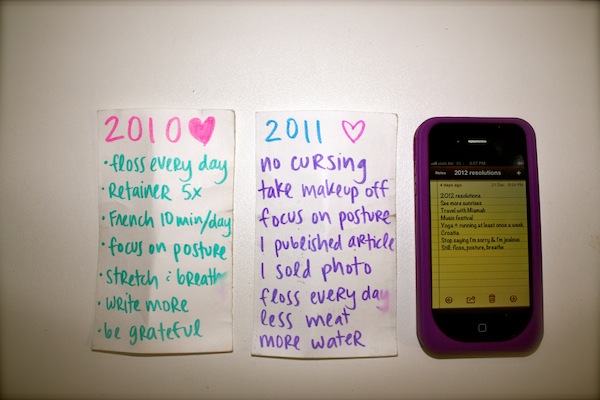 2010
• floss every day
• Retainer 5x
• French 10 min/day
• focus on posture
• stretch & breath
• write more
• be grateful
2011
no cursing
take makeup off
focus on posture
1 published article
1 sold photo
floss every day
less meat
more water
Notes 2012 resolutions +
4 days ago
2012 resolutions
See more sunrises
Travel with Miamah
Music festival
Yoga + running at least once a week
Croatia
Stop saying I'm sorry & I'm jealous
Still: floss, posture, breathe